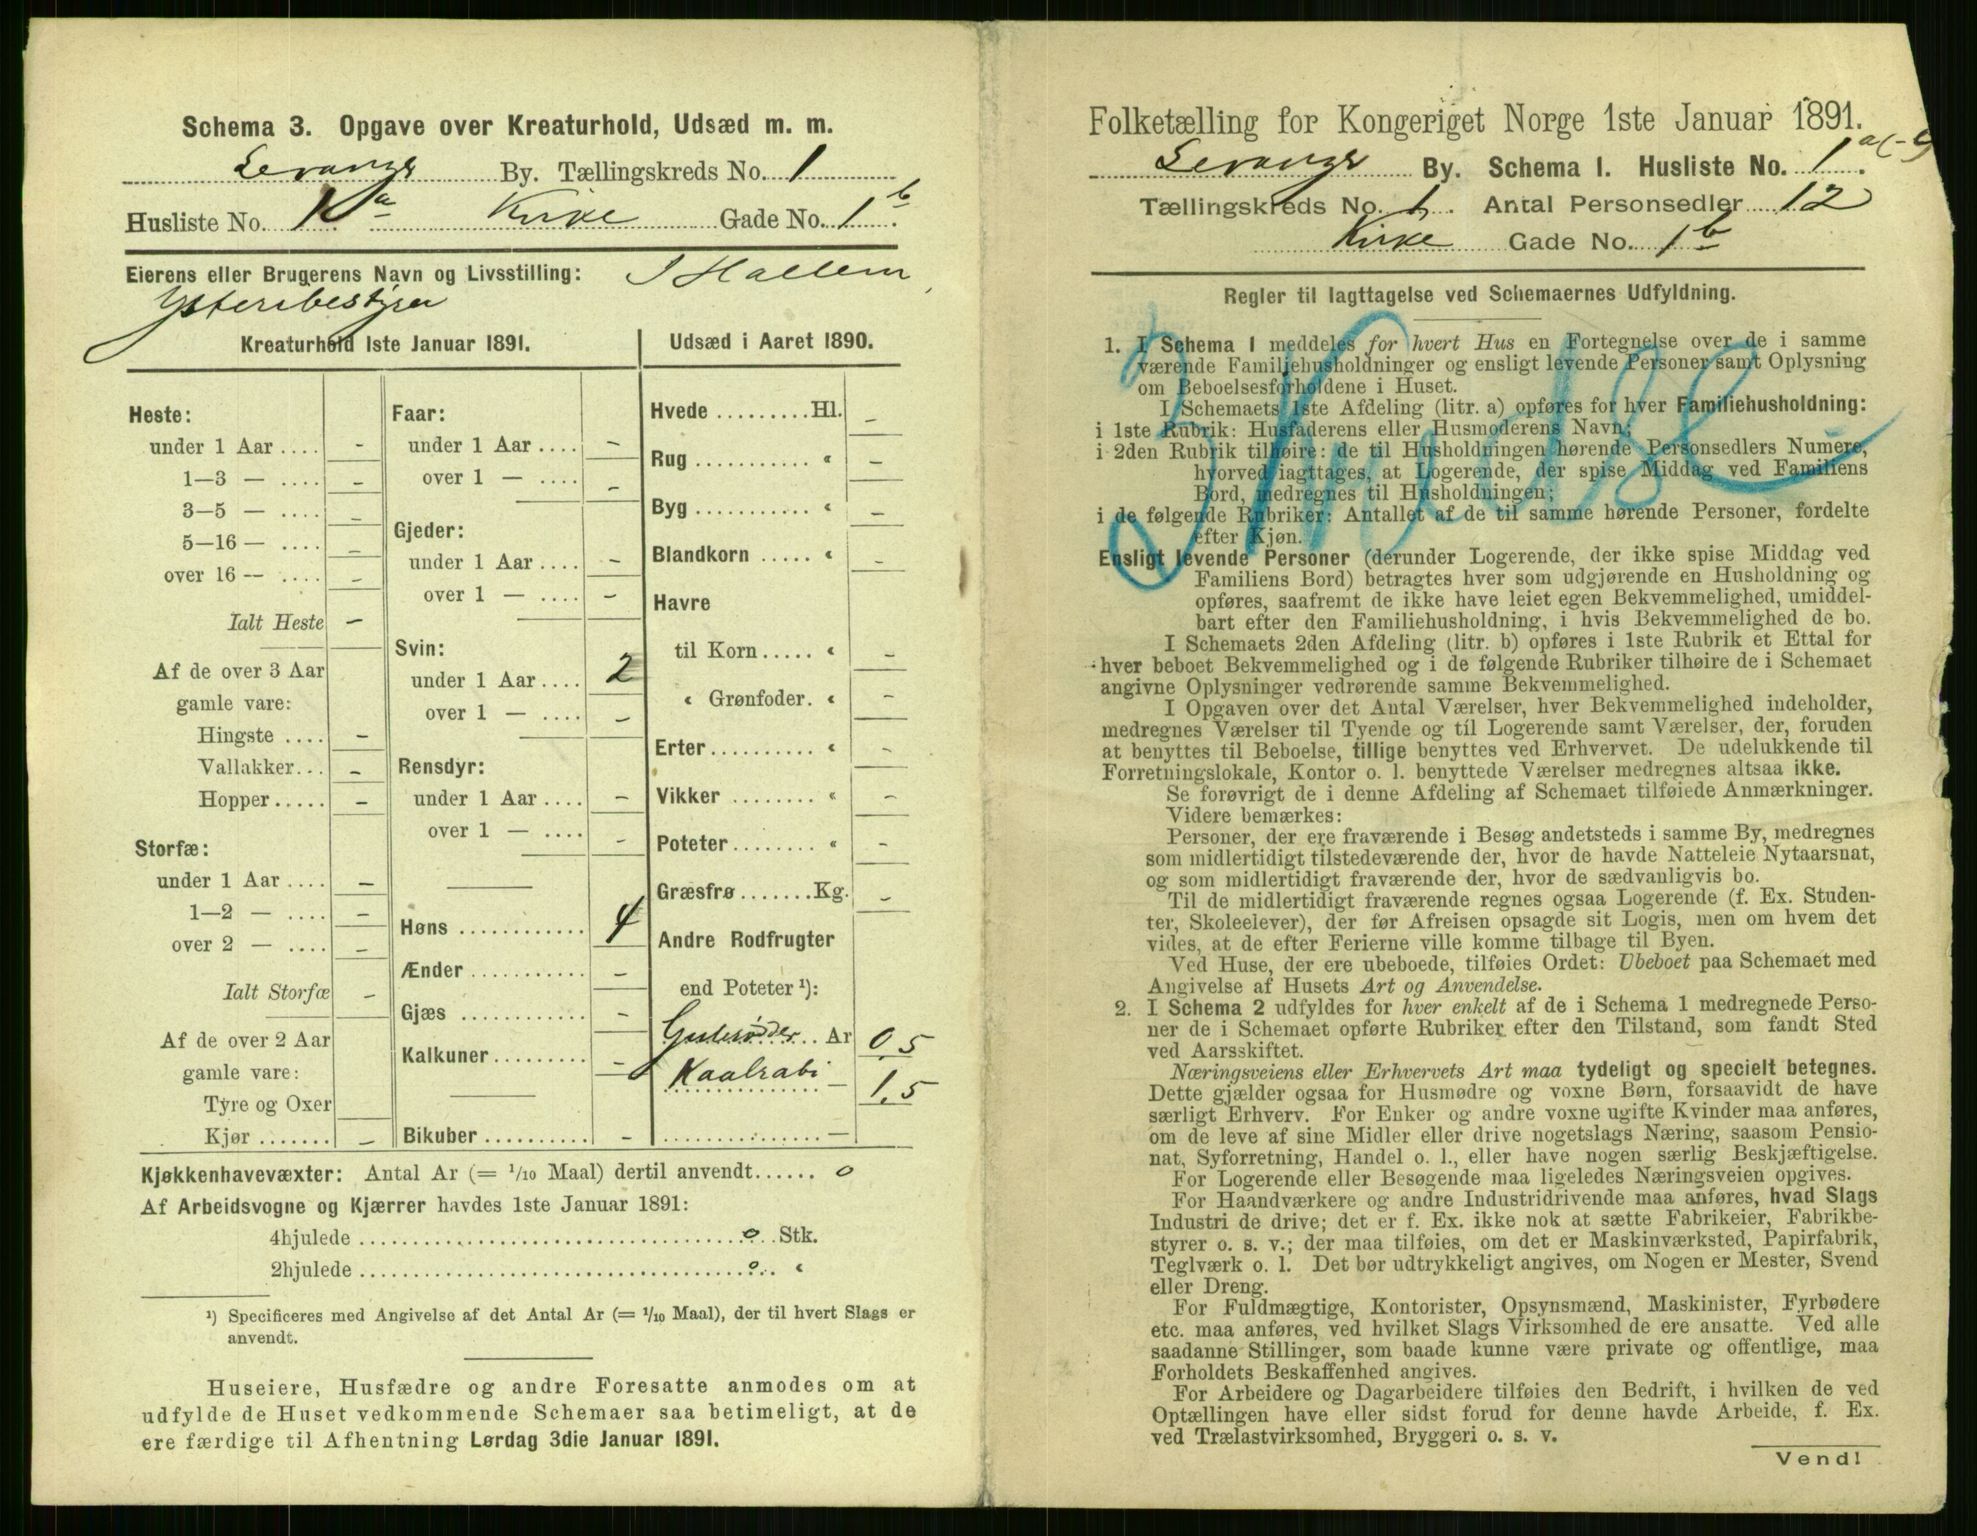 Schema 3. Opgave over Kreaturhold, Udsæd m. m.
Levanger By. Tællingskreds No. 1
Husliste No. 1 a Kirke Gade No. 1 b.
Eierens eller Brugerens Navn og Livsstilling: J Hallem,
Ysteribestyrer
Kreaturhold 1ste Januar 1891.
Heste:
under 1 Aar .... –
1—3 — .... –
3—5 — .... –
5—16 — .... –
over 16 — .... –
Ialt Heste –
Af de over 3 Aar
gamle vare:
Hingste .... –
Vallakker... –
Hopper..... –
Storfæ:
under 1 Aar .... –
1—2 — .... –
over 2 — .... –
Ialt Storfæ –
Af de over 2 Aar
gamle vare:
Tyre og Oxer
Kjør ....... –
Faar:
under 1 Aar .... –
over 1 — .... –
Gjeder:
under 1 Aar .... –
over 1 — .... –
Svin:
under 1 Aar .... 2
over 1 — .... –
Rensdyr:
under 1 Aar .... –
over 1 — .... –
Høns ............ 4
Ænder ........... –
Gjæs ............ –
Kalkuner......... –
Bikuber .......... –
Udsæd i Aaret 1890.
Hvede .........Hl. –
Rug ........... « –
Byg ........... « –
Blandkorn ..... « –
Havre
til Korn ..... « –
« Grønfoder. « –
Erter........... « –
Vikker ........ « –
Poteter ........ « –
Græsfrø .......Kg. –
Andre Rodfrugter
end Poteter ¹):
Gulerødder ... Ar 0,5
Kaalrabi — 1,5
.............. —
Kjøkkenhavevæxter: Antal Ar (= 1/10 Maal) dertil anvendt...... 0
Af Arbeidsvogne og Kjærrer havdes 1ste Januar 1891:
4hjulede ........................................ 0 .. Stk.
2hjulede ........................................ 0 .. «
¹) Specificeres med Angivelse af det Antal Ar (= 1/10 Maal), der til hvert Slags er
anvendt.
Huseiere, Husfædre og andre Foresatte anmodes om at
udfylde de Huset vedkommende Schemaer saa betimeligt, at de
ere færdige til Afhentning Lørdag 3die Januar 1891.
Folketælling for Kongeriget Norge 1ste Januar 1891.
Levanger By. Schema I. Husliste No. 1
Tællingskreds No. 1. Antal Personsedler 12
Kirke Gade No. 1 b
Regler til Iagttagelse ved Schemaernes Udfyldning.
1. I Schema 1 meddeles for hvert Hus en Fortegnelse over de i samme
værende Familiehusholdninger og ensligt levende Personer samt Oplysning
om Beboelsesforholdene i Huset.
I Schemaets 1ste Afdeling (litr. a) opføres for hver Familiehusholdning:
i 1ste Rubrik: Husfaderens eller Husmoderens Navn;
i 2den Rubrik tilhøire: de til Husholdningen hørende Personsedlers Numere,
hvorved iagttages, at Logerende, der spise Middag ved Familiens
Bord, medregnes til Husholdningen;
i de følgende Rubriker: Antallet af de til samme hørende Personer, fordelte
efter Kjøn.
Ensligt levende Personer (derunder Logerende, der ikke spise Middag ved
Familiens Bord) betragtes hver som udgjørende en Husholdning og
opføres, saafremt de ikke have leiet egen Bekvemmelighed, umiddel-
bart efter den Familiehusholdning, i hvis Bekvemmelighed de bo.
I Schemaets 2den Afdeling (litr. b) opføres i 1ste Rubrik et Ettal for
hver beboet Bekvemmelighed og i de følgende Rubriker tilhøire de i Schemaet
angivne Oplysninger vedrørende samme Bekvemmelighed.
I Opgaven over det Antal Værelser, hver Bekvemmelighed indeholder,
medregnes Værelser til Tyende og til Logerende samt Værelser, der, foruden
at benyttes til Beboelse, tillige benyttes ved Erhvervet. De udelukkende til
Forretningslokale, Kontor o. l. benyttede Værelser medregnes altsaa ikke.
Se forøvrigt de i denne Afdeling af Schemaet tilføiede Anmærkninger.
Videre bemærkes:
Personer, der ere fraværende i Besøg andetsteds i samme By, medregnes
som midlertidigt tilstedeværende der, hvor de havde Natteleie Nytaarsnat,
og som midlertidigt fraværende der, hvor de sædvanligvis bo.
Til de midlertidigt fraværende regnes ogsaa Logerende (f. Ex. Studen-
ter, Skoleelever), der før Afreisen opsagde sit Logis, men om hvem det
vides, at de efter Ferierne ville komme tilbage til Byen.
Ved Huse, der ere ubeboede, tilføies Ordet: Ubeboet paa Schemaet med
Angivelse af Husets Art og Anvendelse.
2. I Schema 2 udfyldes for hver enkelt af de i Schema 1 medregnede Perso-
ner de i Schemaet opførte Rubriker efter den Tilstand, som fandt Sted
ved Aarsskiftet.
Næringsveiens eller Erhvervets Art maa tydeligt og specielt betegnes.
Dette gjælder ogsaa for Husmødre og voxne Børn, forsaavidt de have
særligt Erhverv. For Enker og andre voxne ugifte Kvinder maa anføres,
om de leve af sine Midler eller drive nogetslags Næring, saasom Pensio-
nat, Syforretning, Handel o. l., eller have nogen særlig Beskjæftigelse.
For Logerende eller Besøgende maa ligeledes Næringsveien opgives.
For Haandværkere og andre Industridrivende maa anføres, hvad Slags
Industri de drive; det er f. Ex. ikke nok at sætte Fabrikeier, Fabrikbe-
styrer o. s. v.; der maa tilføies, om det er Maskinværksted, Papirfabrik,
Teglværk o. l. Det bør udtrykkeligt angives, om Nogen er Mester, Svend
eller Dreng.
For Fuldmægtige, Kontorister, Opsynsmænd, Maskinister, Fyrbødere
etc. maa anføres, ved hvilket Slags Virksomhed de ere ansatte. Ved alle
saadanne Stillinger, som baade kunne være private og offentlige, maa
Forholdets Beskaffenhed angives.
For Arbeidere og Dagarbeidere tilføies den Bedrift, i hvilken de ved
Optællingen have eller sidst forud for denne havde Arbeide, f. Ex.
ved Trælastvirksomhed, Bryggeri o. s. v.
Vend!